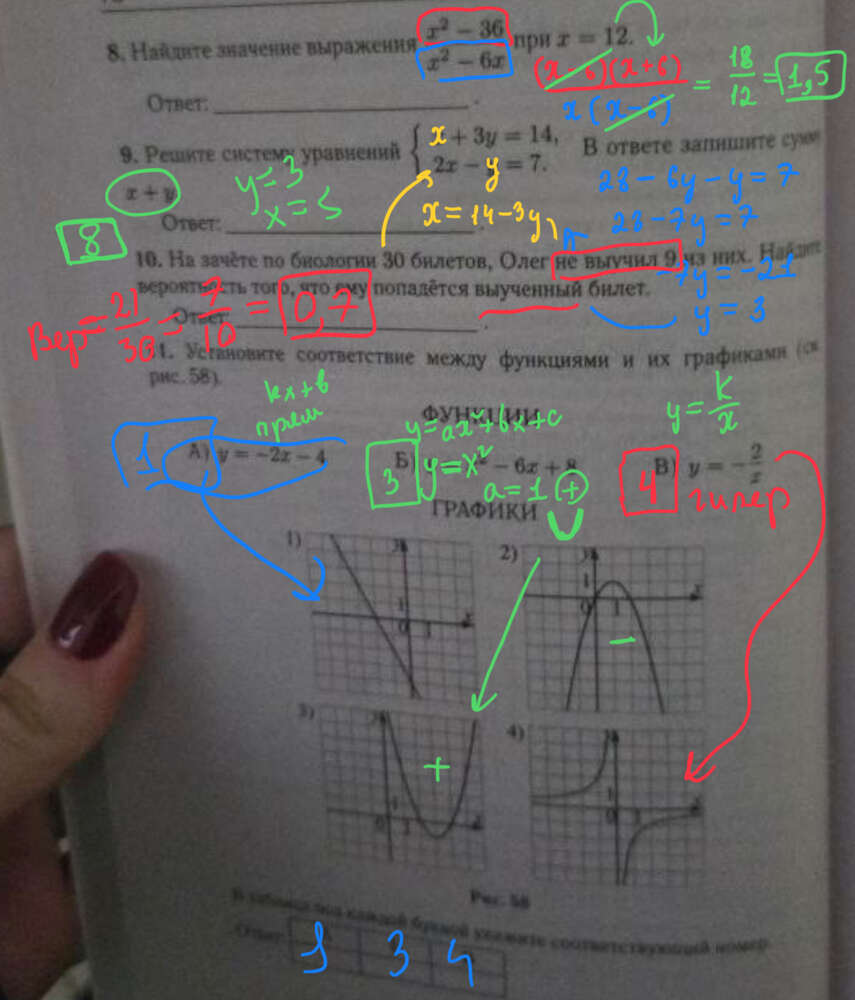 8. Найдите значение выражения x² − 36 / x² − 6x при x = 12.
(x−6)(x+6) / x(x−6) = 18/12 = 1,5
Ответ:
9. Решите систему уравнений { x + 3y = 14, 2x − y = 7. В ответе запишите
x + y
y=3
x=5
28−6y−y=7
28−7y=7
−7y=−21
y=3
x=14−3y
Ответ:
8
10. На зачёте по биологии 30 билетов, Олег не выучил 9 из них. Найдите
вероятность того, что ему попадётся выученный билет.
Вер=21/30=7/10=0,7
Ответ:
11. Установите соответствие между функциями и их графиками (см.
рис. 58).
kx+b
прям
ФУНКЦИИ
y=ax²+bx+c
y=k/x
1
А) y = −2x − 4
3
Б) y=x² − 6x + 8
a=1 (+)
4
В) y = −2/x
гипер
ГРАФИКИ
1) y x 1 0 1
2) y x 1 0 1 −
3) y x 1 0 1 +
4) y x 1 0 1
Рис. 58
В таблице под каждой буквой укажите соответствующий номер.
Ответ:
1 3 4